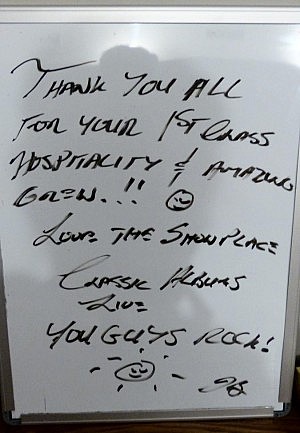 THANK YOU ALL
FOR YOUR 1ST CLASS
HOSPITALITY & AMAZING
CREW..!!
LOVE THE SHOWPLACE
CLASSIC ALBUMS
LIVE
YOU GUYS ROCK!